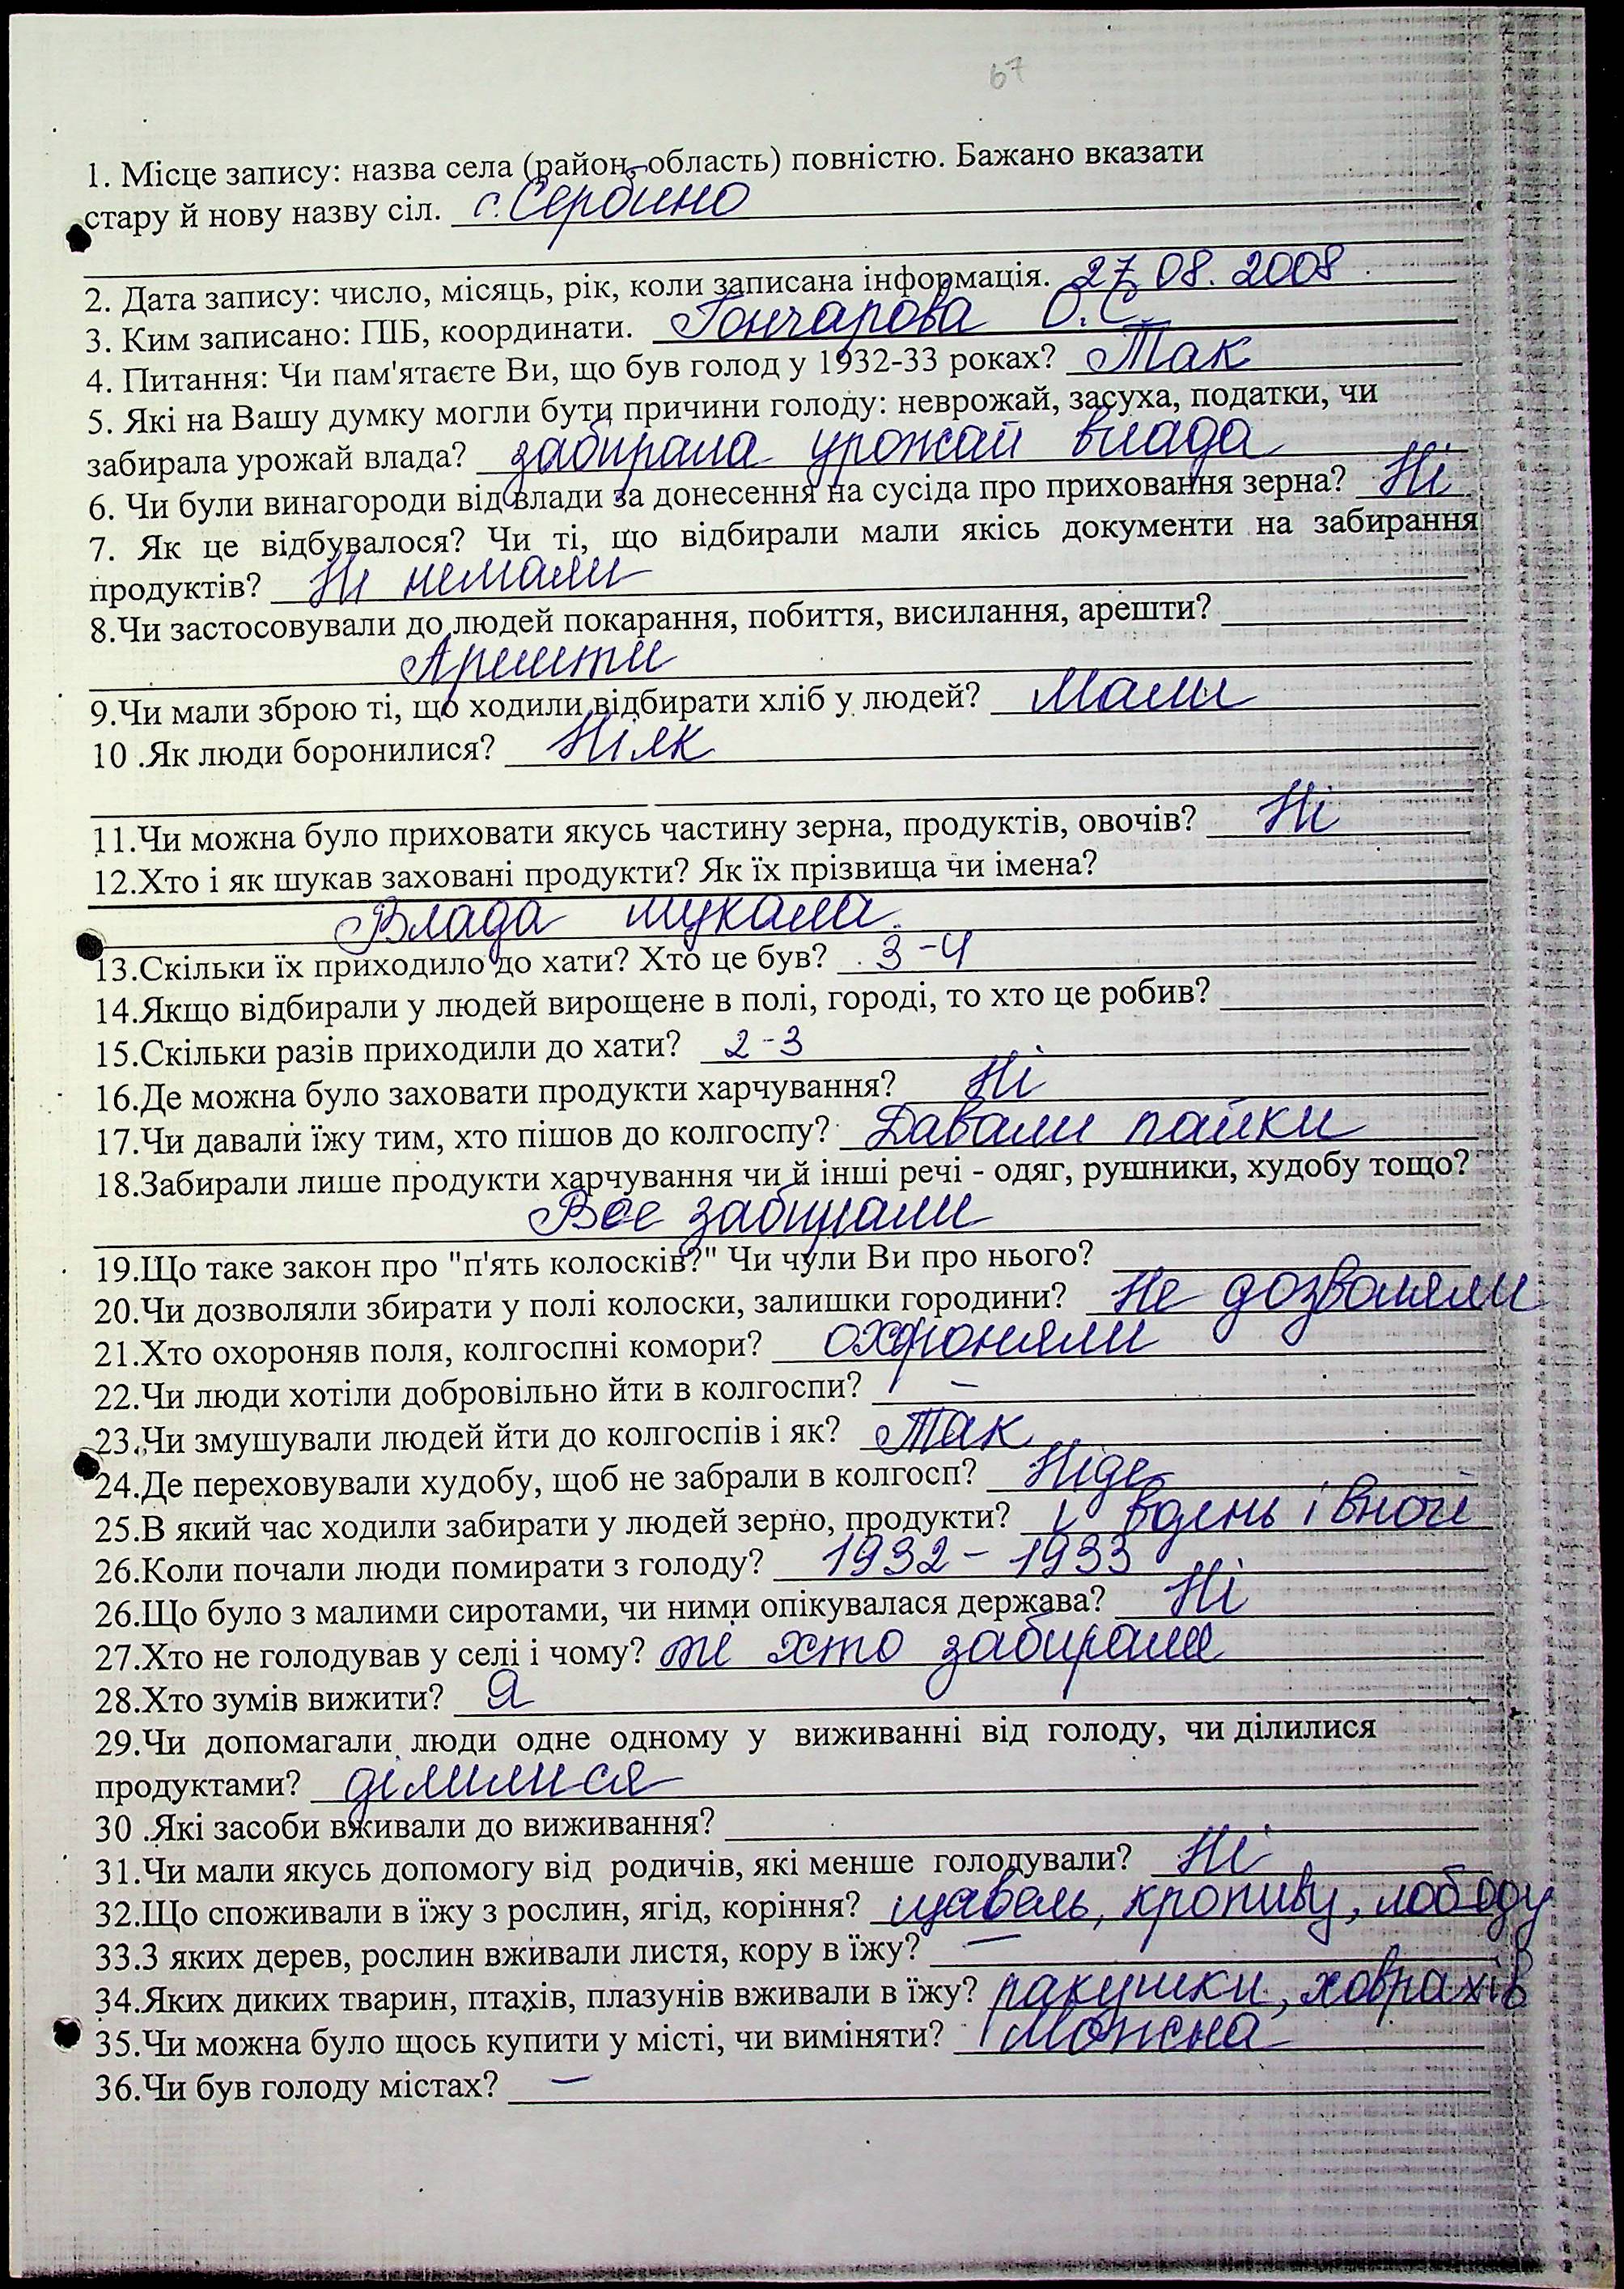 67
1. Місце запису: назва села (район, область) повністю. Бажано вказати
стару й нову назву сіл. с. Сербино
2. Дата запису: число, місяць, рік, коли записана інформація. 27.08.2008
3. Ким записано: ПІБ, координати. Гончарова О.С.
4. Питання: Чи пам'ятаєте Ви, що був голод у 1932-33 роках? Так
5. Які на Вашу думку могли бути причини голоду: неврожай, засуха, податки, чи
забирала урожай влада? забирала урожай влада
6. Чи були винагороди від влади за донесення на сусіда про приховання зерна? Ні
7. Як це відбувалося? Чи ті, що відбирали мали якісь документи на забирання
продуктів? Ні немали
8.Чи застосовували до людей покарання, побиття, висилання, арешти?
Арешти
9.Чи мали зброю ті, що ходили відбирати хліб у людей? Мали
10 .Як люди боронилися? Ніяк
11.Чи можна було приховати якусь частину зерна, продуктів, овочів? Ні
12.Хто і як шукав заховані продукти? Як їх прізвища чи імена?
Влада шукала.
13.Скільки їх приходило до хати? Хто це був? 3-4
14.Якщо відбирали у людей вирощене в полі, городі, то хто це робив?
15.Скільки разів приходили до хати? 2-3
16.Де можна було заховати продукти харчування? Ні
17.Чи давали їжу тим, хто пішов до колгоспу? Давали пайки
18.Забирали лише продукти харчування чи й інші речі - одяг, рушники, худобу тощо?
Все забирали
19.Що таке закон про "п'ять колосків?" Чи чули Ви про нього?
20.Чи дозволяли збирати у полі колоски, залишки городини? Не дозволяли
21.Хто охороняв поля, колгоспні комори? охроняли
22.Чи люди хотіли добровільно йти в колгоспи? –
23.Чи змушували людей йти до колгоспів і як? Так
24.Де переховували худобу, щоб не забрали в колгосп? Ніде
25.В який час ходили забирати у людей зерно, продукти? і вдень і вночі
26.Коли почали люди помирати з голоду? 1932 – 1933
26.Що було з малими сиротами, чи ними опікувалася держава? Ні
27.Хто не голодував у селі і чому? ті хто забирали
28.Хто зумів вижити? Я
29.Чи допомагали люди одне одному у виживанні від голоду, чи ділилися
продуктами? ділилися
30 .Які засоби вживали до виживання?
31.Чи мали якусь допомогу від родичів, які менше голодували? Ні
32.Що споживали в їжу з рослин, ягід, коріння? щавель, кропиву, лободу
33.З яких дерев, рослин вживали листя, кору в їжу? –
34.Яких диких тварин, птахів, плазунів вживали в їжу? ракушки, ховрахів
35.Чи можна було щось купити у місті, чи виміняти? Можна
36.Чи був голоду містах? –